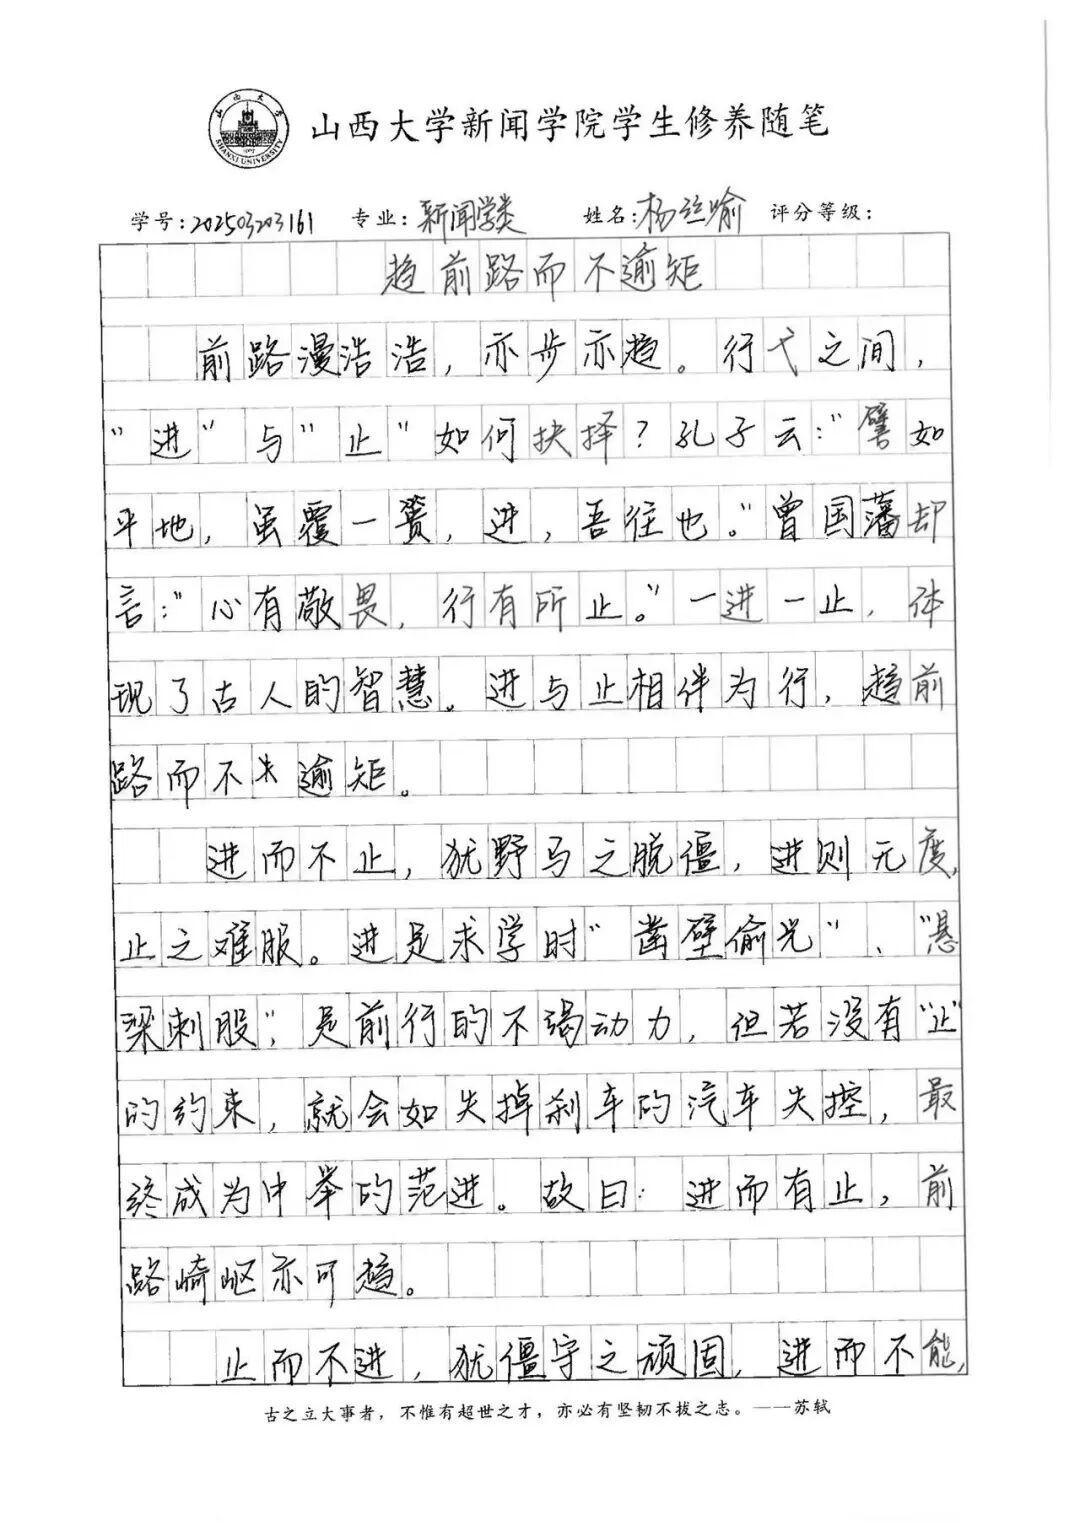 山西大学
SHANXI UNIVERSITY
山西大学新闻学院学生修养随笔
学号:202503203161 专业:新闻学类 姓名:杨竝喻 评分等级:
趋前路而不逾矩
前路漫浩浩，亦步亦趋。行弋之间，
"进"与"止"如何抉择?孔子云:"譬如
平地，虽覆一篑，进，吾往也。"曾国藩却
言:"心有敬畏，行有所止。"一进一止，体
现了古人的智慧。进与止相伴为行，趋前
路而不失逾矩。
进而不止，犹野马之脱僵，进则无度，
止之难服。进是求学时"凿壁偷光"、"悬
梁刺股"，是前行的不竭动力，但若没有"止"
的约束，就会如失掉刹车的汽车失控，最
终成为中举的范进。故曰:进而有止，前
路崎岖亦可趋。
止而不进，犹僵守之顽固，进而不能，
古之立大事者，不惟有超世之才，亦必有坚韧不拔之志。——苏轼